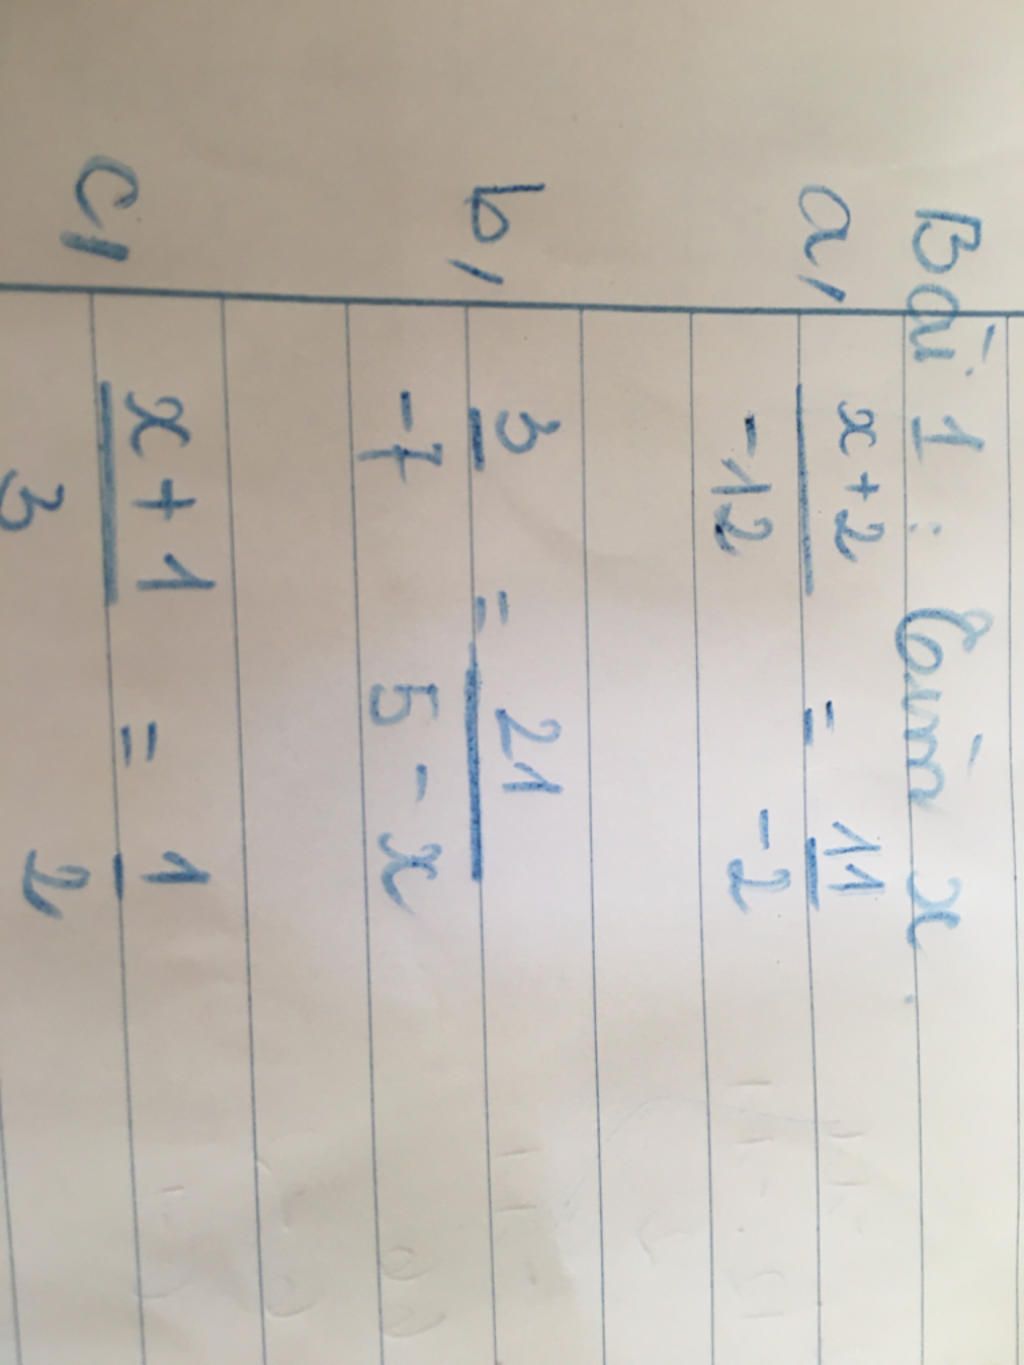 Bài 1 : Tìm x.
a, \frac{x+2}{-12} = \frac{11}{-2}
b, \frac{3}{-7} = \frac{21}{5-x}
c, \frac{x+1}{3} = \frac{1}{2}